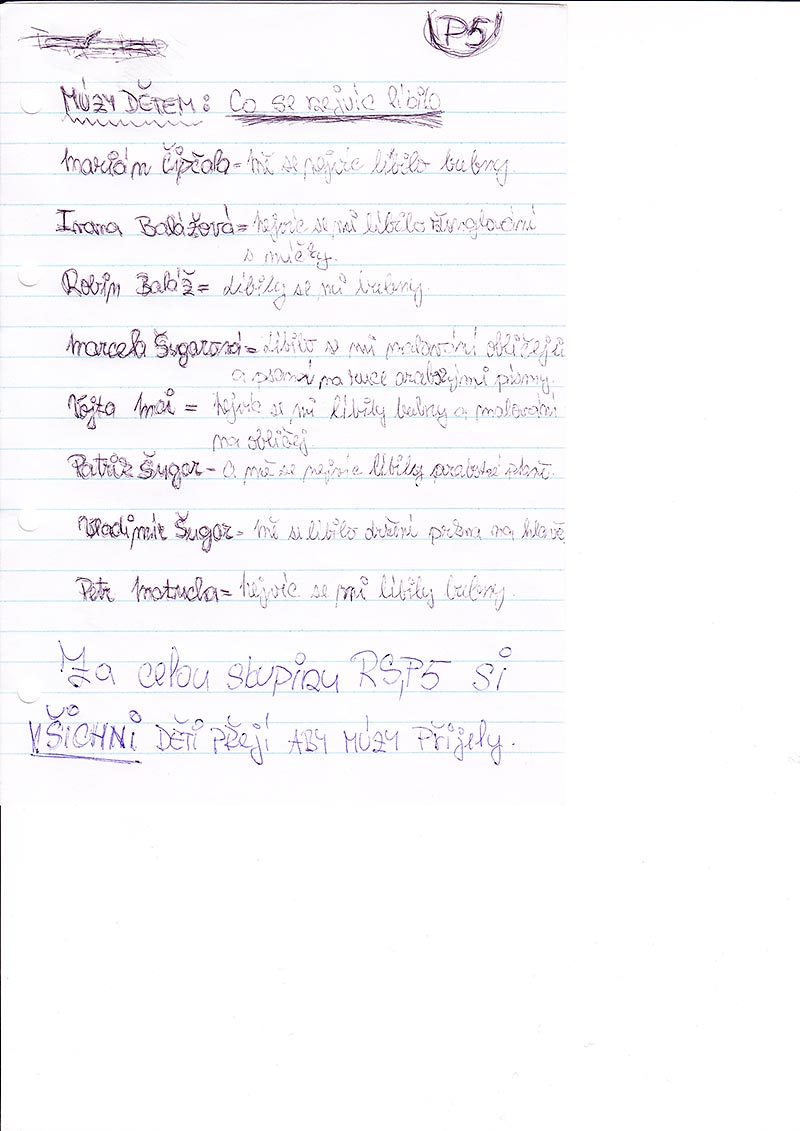 P5
MÚZY DĚTEM: Co se nejvíc líbilo
Marián Čipčala = mě se nejvíc líbilo bubny.
Ivana Balážová = nejvíc se mi líbilo žonglování
s míčky.
Robin Baláž = Líbily se mi bubny.
Marcela Šugarová = Líbilo se mi malování obličejů
a psaní na ruce arabskými písmy.
Vojta = nejvíc se mi líbily bubny a malování
na obličej.
Patrik Šugar - A mě se nejvíc líbily arabské
Vladimír Šugar = mě si líbilo držení na hlavě
Petr Matucha = nejvíc se mi líbily bubny.
Za celou skupinu RS,P5 si
VŠICHNI DĚTI PŘEJÍ ABY MÚZY PŘIJELY.